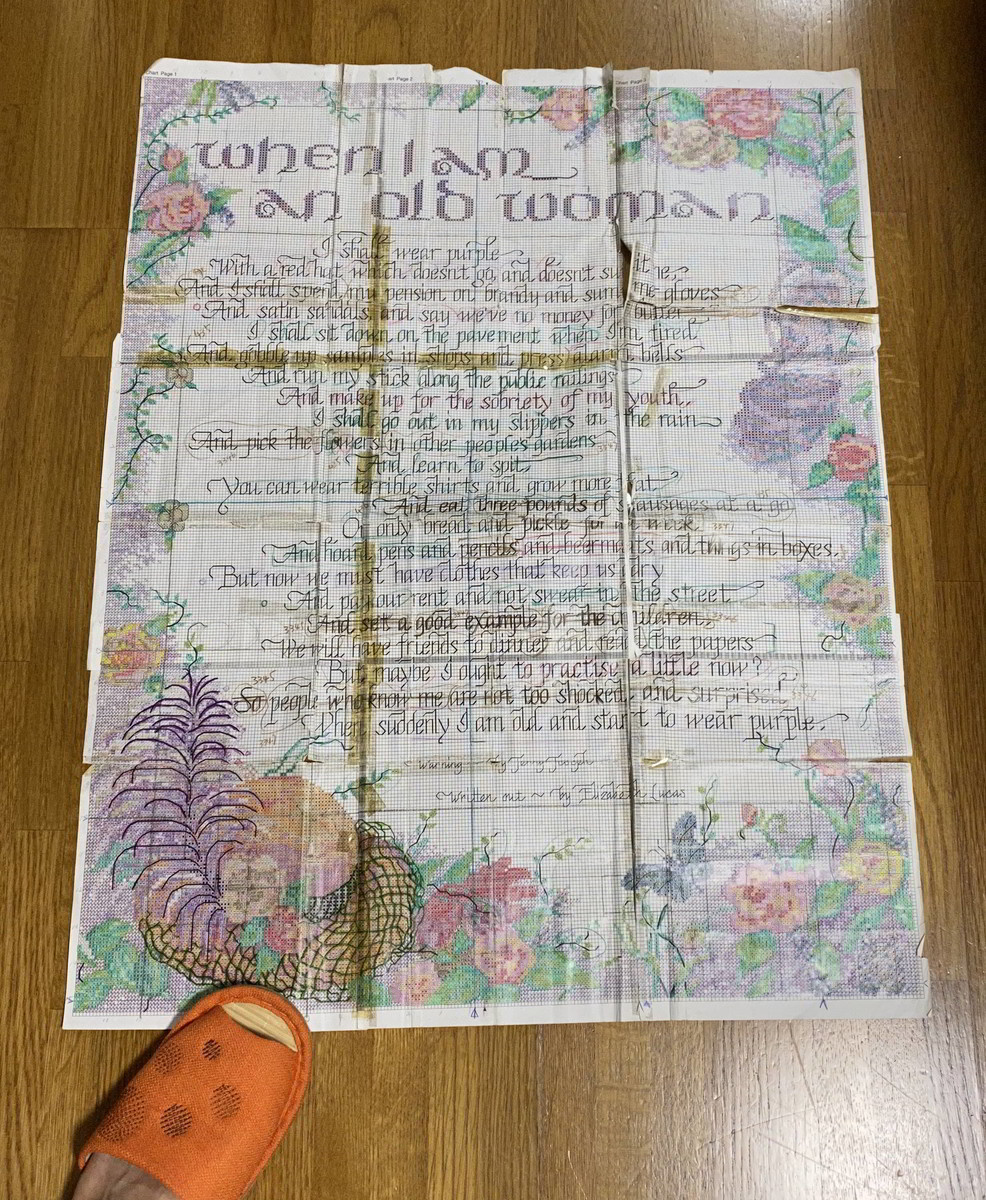 Chart Page 1
art Page 2
Chart Page
when I am
an old woman
I shall wear purple
With a red hat which doesn't go, and doesn't suit me,
And I shall spend my pension on brandy and summer gloves
And satin sandals, and say we've no money for butter.
I shall sit down on the pavement when I'm tired
And gobble up samples in shops and press alarm bells
And run my stick along the public railings
And make up for the sobriety of my youth.
I shall go out in my slippers in the rain
And pick the flowers in other peoples gardens
And learn to spit.
You can wear terrible shirts and grow more fat
And eat three pounds of sausages at a go
Or only bread and pickle for a week
And hoard pens and pencils and beermats and things in boxes.
But now we must have clothes that keep us dry
And pay our rent and not swear in the street
And set a good example for the children.
We will have friends to dinner and read the papers
But maybe I ought to practise a little now?
So people who know me are not too shocked and surprised
When suddenly I am old and start to wear purple.
Warning ~ by Jenny Joseph
Written out ~ by Elizabeth Lucas